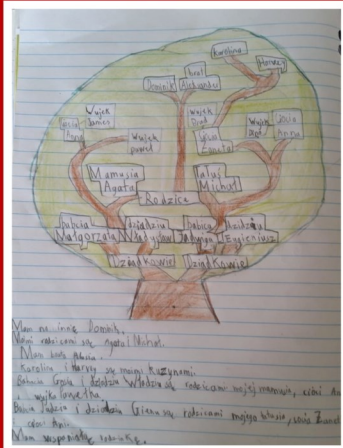 Karolina
Harvey
Dominik
brat
Aleksander
Wujek
Ciocia
Żaneta
Ciocia
Anna
Wujek
Janusz
Wujek
Paweł
Wujek
Ciocia
Anna
Mamusia
Agata
Tatuś
Michał
Rodzice
babcia
Małgorzata
dziadziu
Władysław
babcia
dziadziu
Eugieniusz
Dziadkowie
Dziadkowie
Mam na imię Dominik.
Moimi rodzicami są Agata i Michał.
Mam brata
Karolina i Harvey są moimi kuzynami.
Babcia Gosia i dziadziu Władziu są rodzicami mojej mamusi, cioci
i wujka Pawełka.
Babcia Jadzia i dziadziu Gienu są rodzicami mojego tatusia, cioci Żanety
i cioci Ani.
Mam wspaniałą rodzinkę.